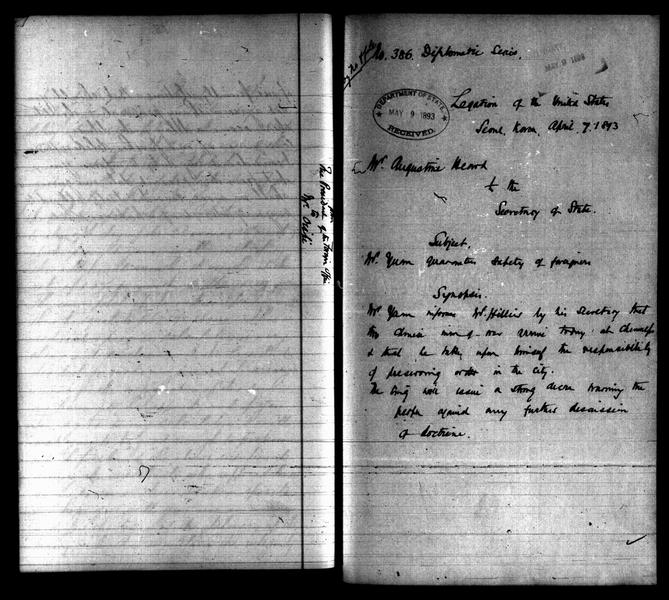 from
The President of the Foreign Office
to
Mr Oishi
No. 386. Diplomatic Series.
MAY 9 1893
DEPARTMENT OF STATE,
MAY 9 1893
RECEIVED.
Legation of the United States
Seoul, Korea, April 7. 1893
Mr. Augustine Heard
to the
Secretary of State.
Subject.
Mr. Yuan guarantees safety of foreigners
Synopsis.
Mr Yuan informs Mr. Hillier by his Secretary that
two Chinese men-of-war arrive today, at Chemulpo
& that he takes upon himself the responsibility
of preserving order in the city.
The King will issue a strong decree warning the
people against any further discussion
of doctrine.